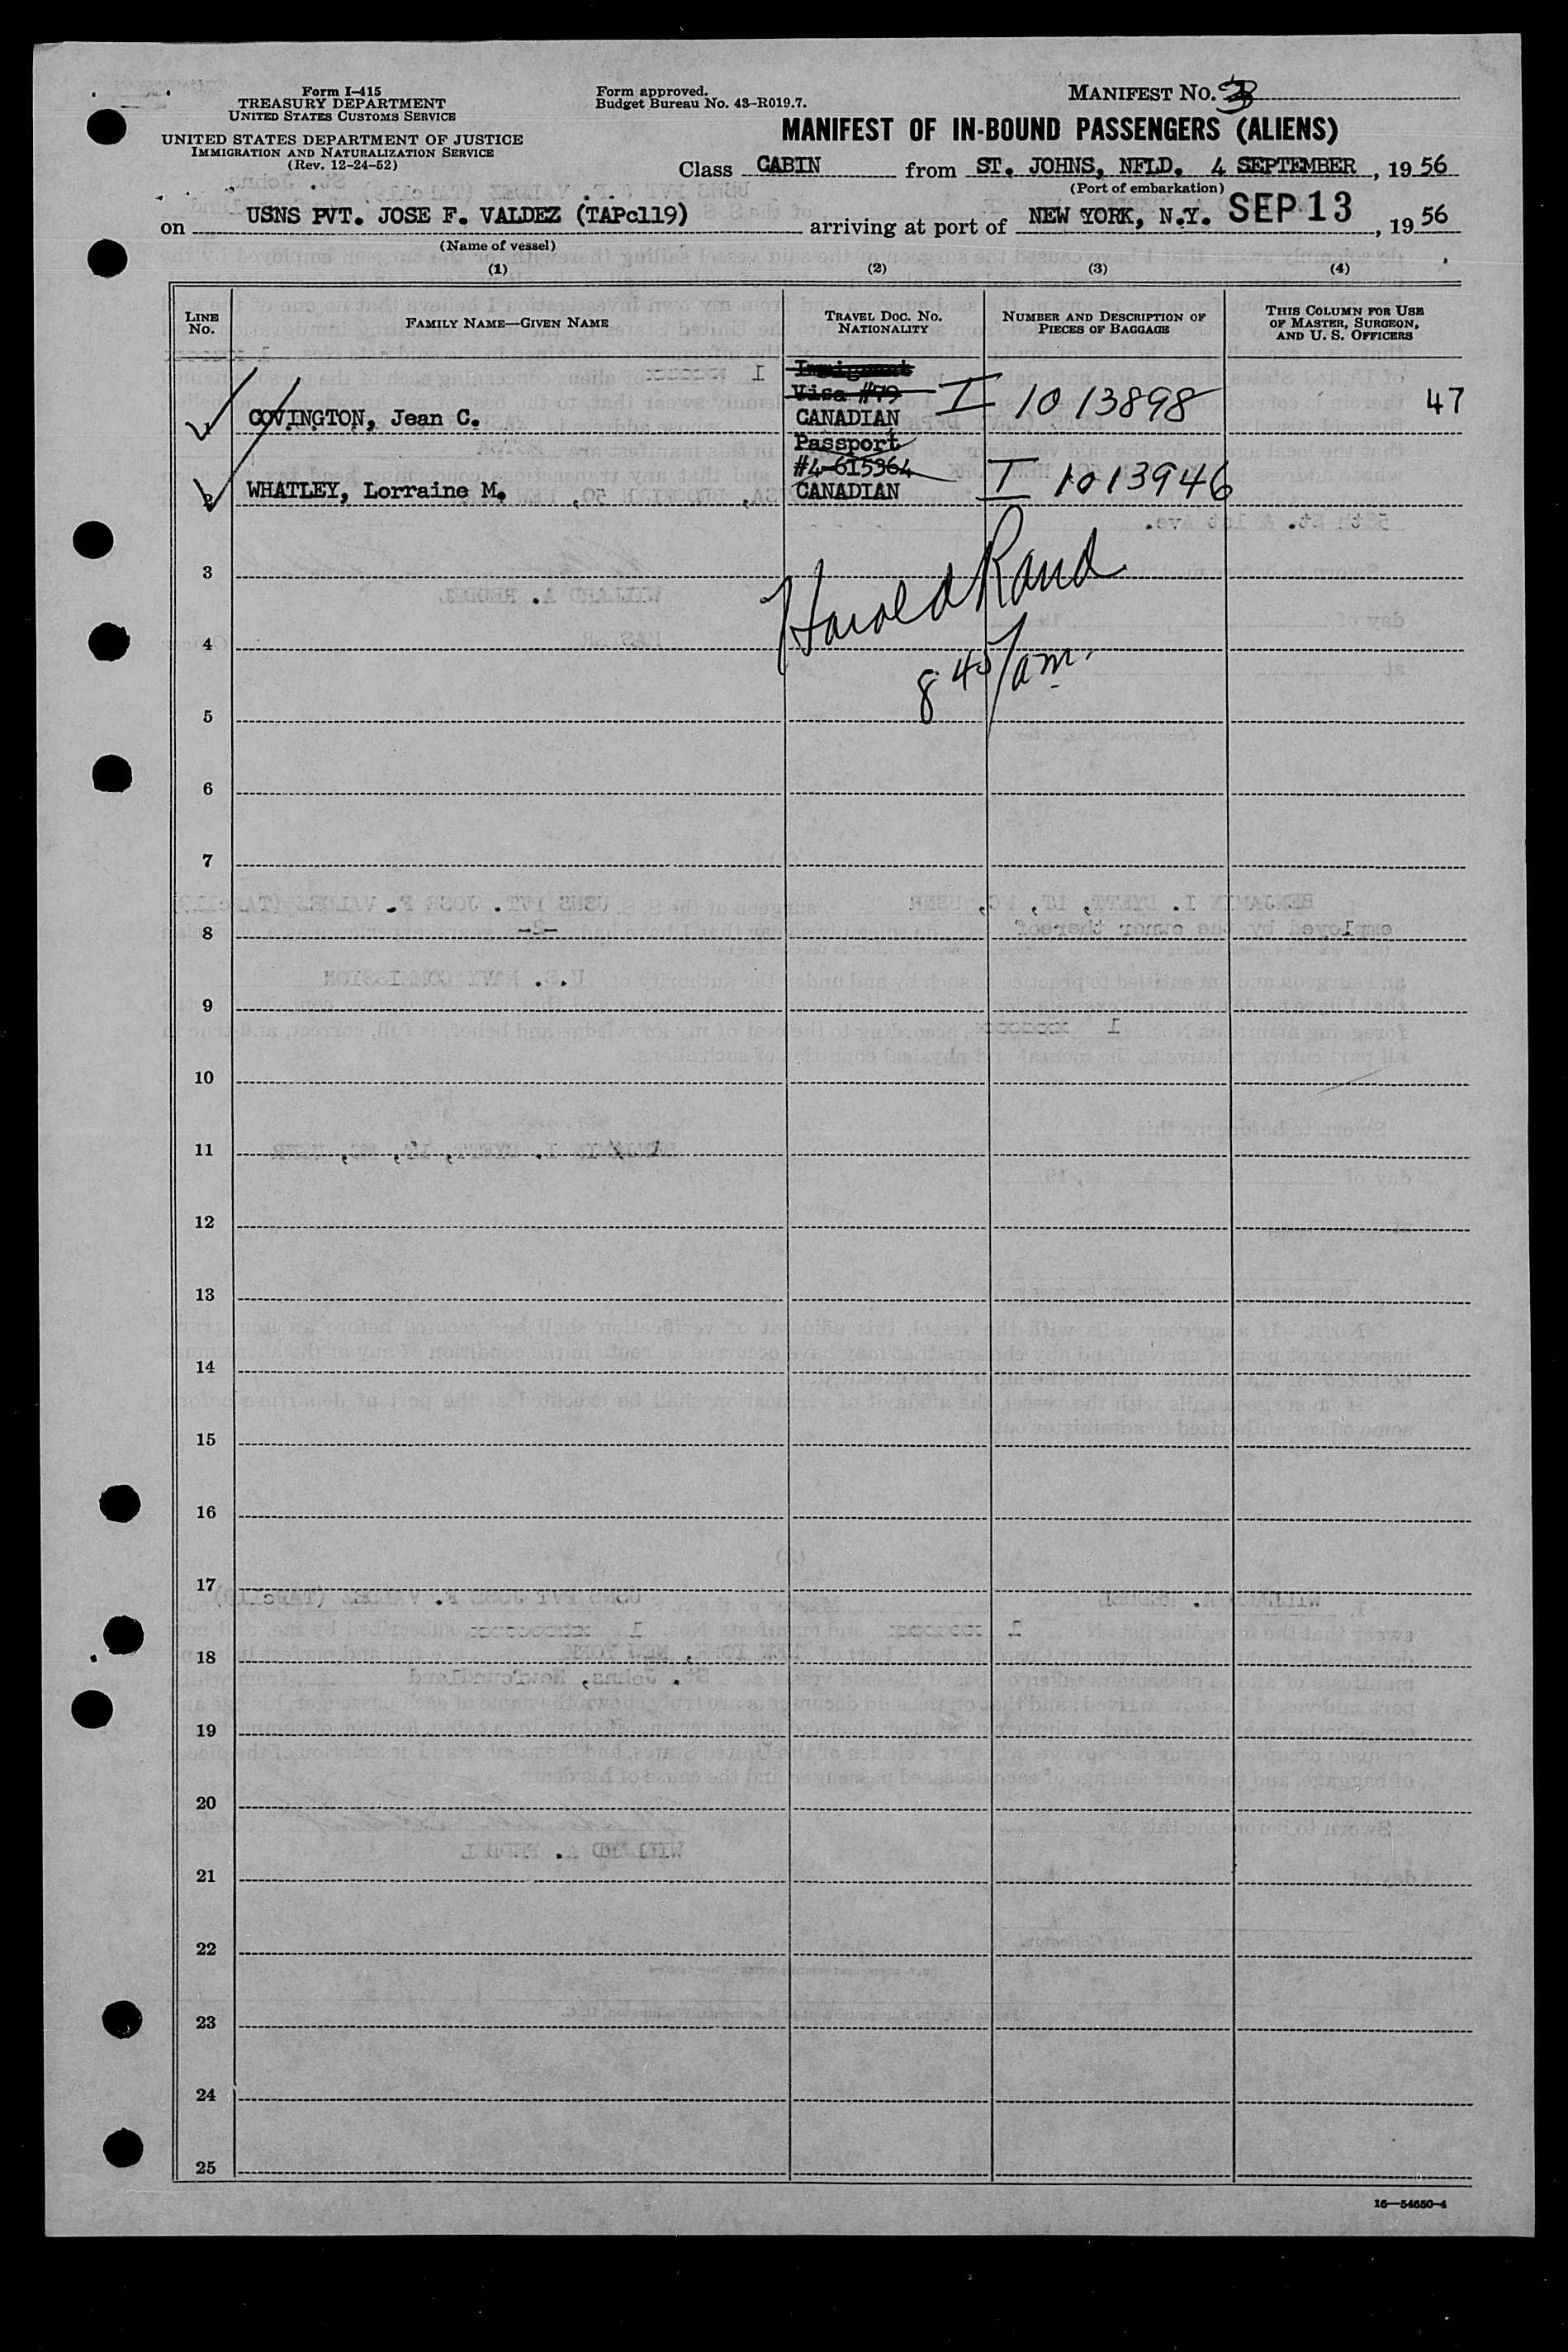 Form I-415
TREASURY DEPARTMENT
UNITED STATES CUSTOMS SERVICE
UNITED STATES DEPARTMENT OF JUSTICE
IMMIGRATION AND NATURALIZATION SERVICE
(Rev. 12-24-52)
Form approved.
Budget Bureau No. 43-R019.7.
MANIFEST NO. 3
MANIFEST OF IN-BOUND PASSENGERS (ALIENS)
Class CABIN from ST. JOHNS, NFLD. 4 SEPTEMBER, 1956
(Port of embarkation)
on USNS PVT. JOSE F. VALDEZ (TAPc119) arriving at port of NEW YORK, N.Y. SEP 13, 1956
(Name of vessel)
(1) (2) (3) (4)
LINE NO. FAMILY NAME—GIVEN NAME TRAVEL DOC. NO. NATIONALITY NUMBER AND DESCRIPTION OF PIECES OF BAGGAGE THIS COLUMN FOR USE OF MASTER, SURGEON, AND U. S. OFFICERS
Immigrant
Visa #79
1 COVINGTON, Jean C. CANADIAN I 1013898 47
Passport
#4-615364
2 WHATLEY, Lorraine M. CANADIAN I 1013946
3
Harold Rand
4
8 45/am.
5
6
7
8
9
10
11
12
13
14
15
16
17
18
19
20
21
22
23
24
25
16—54650-4